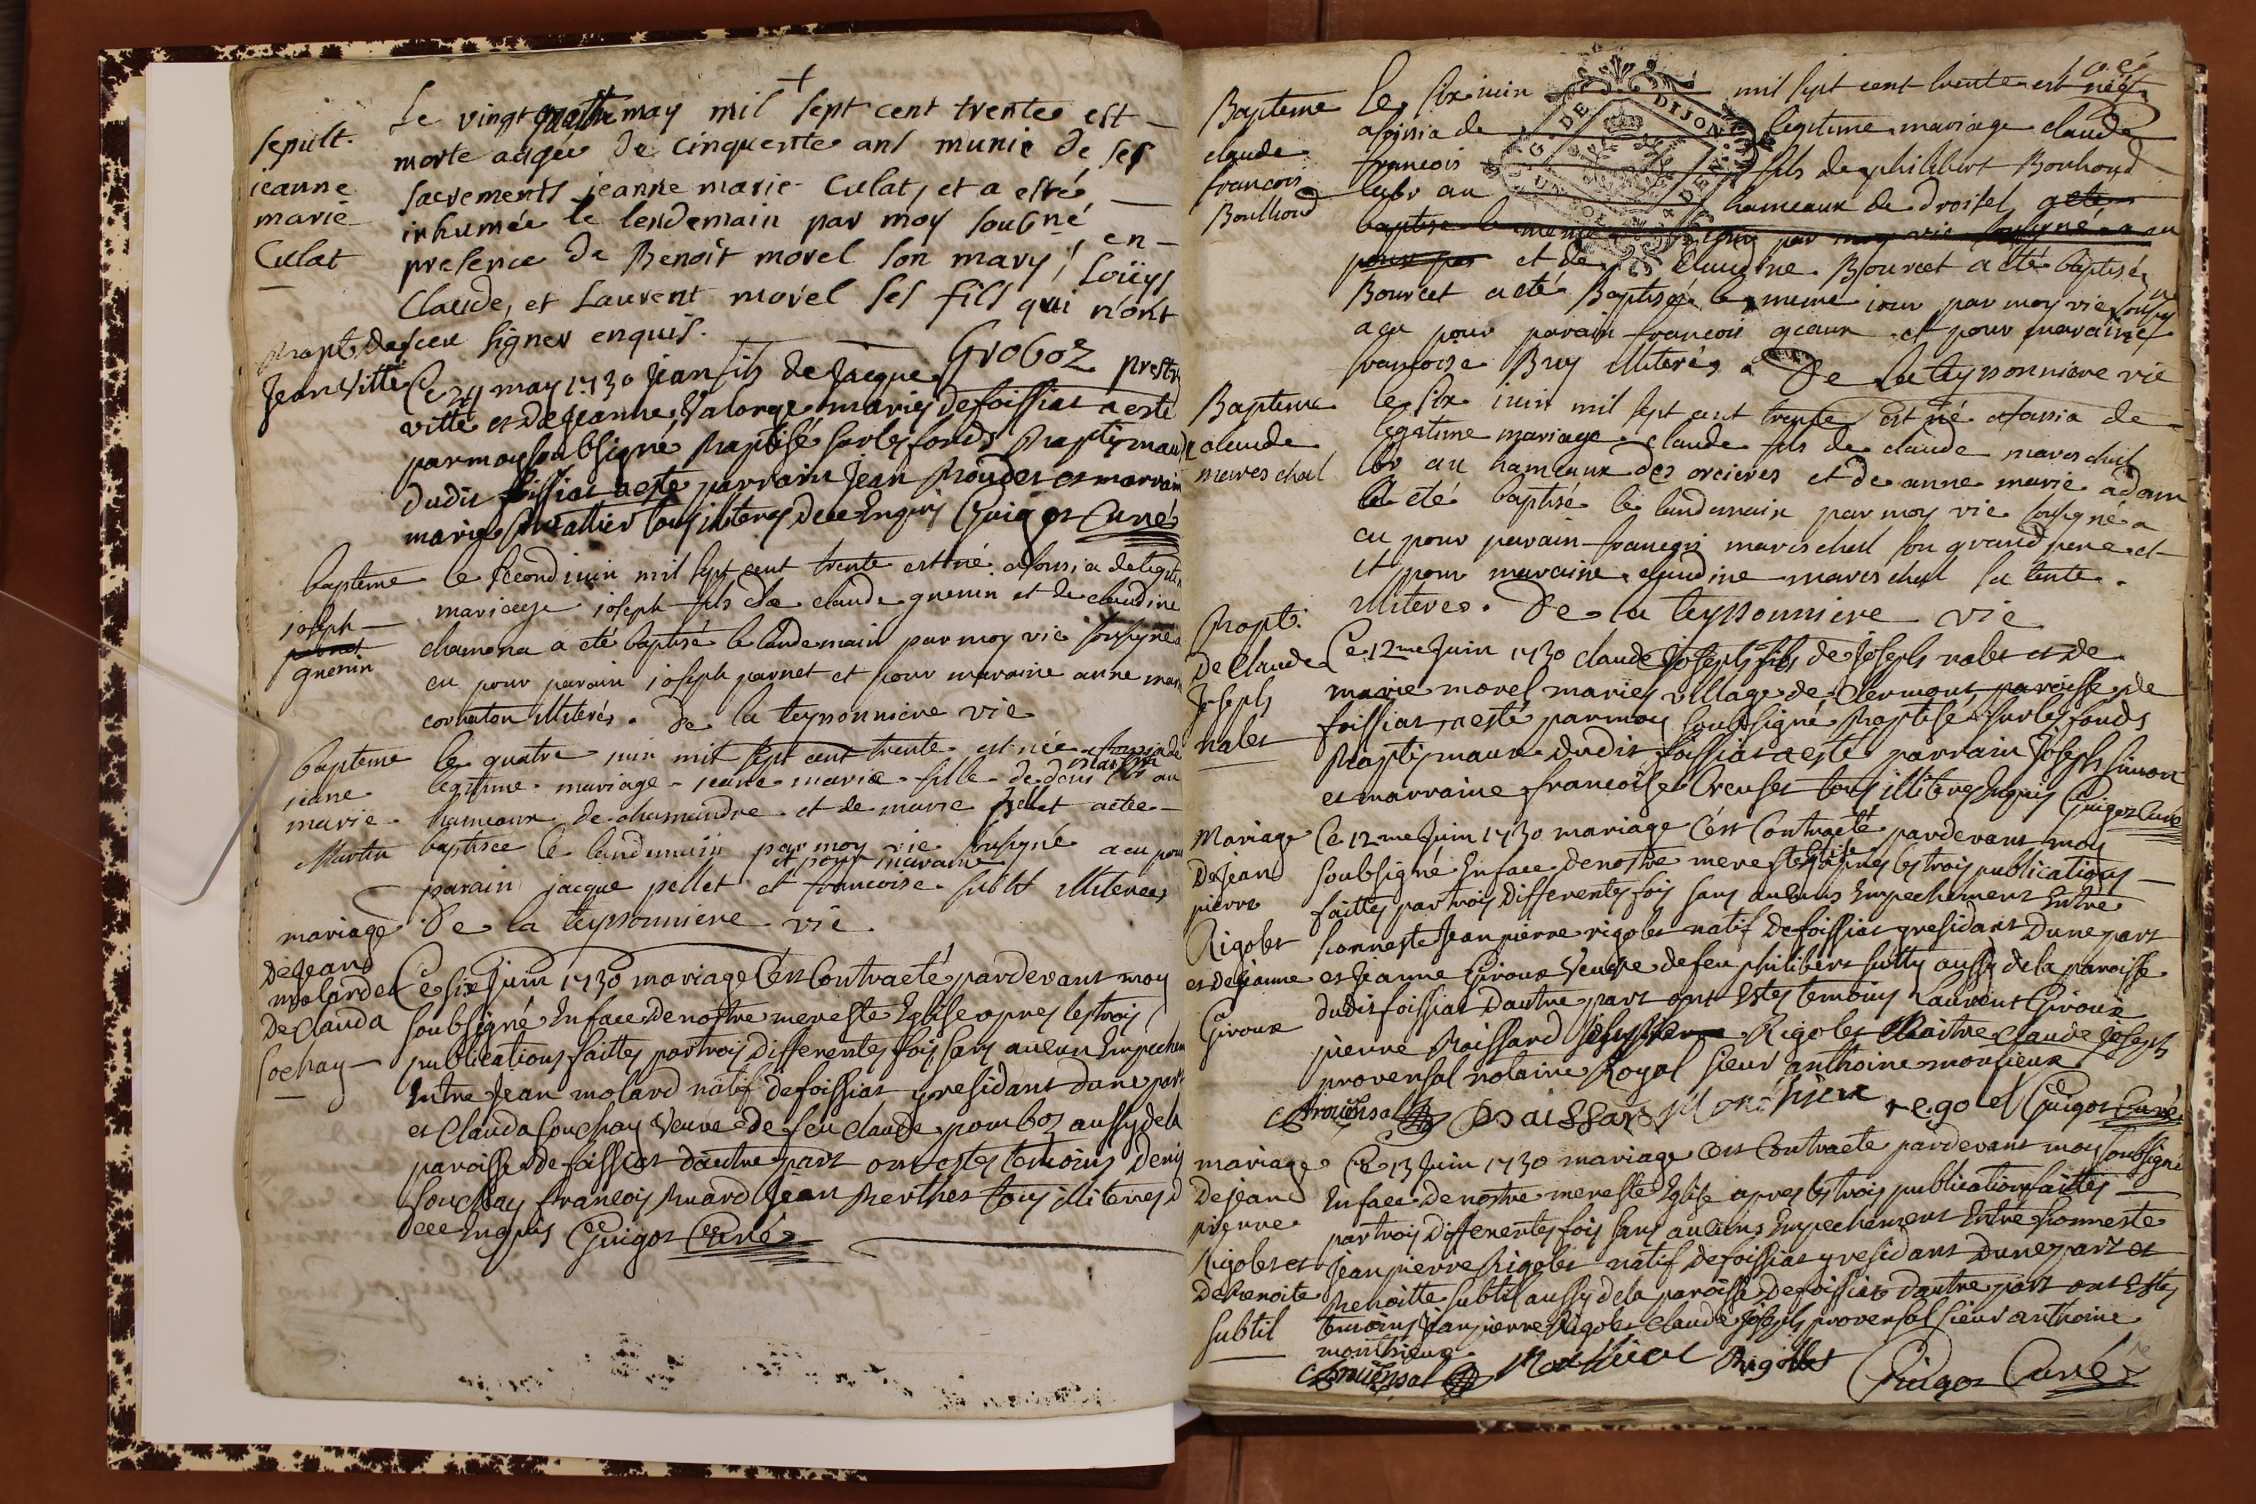 +
sepult.
jeanne
marie
Culat
Le vingt quattre may mil sept cent trente est
morte aagée de cinquente ans munie de ses
sacrements jeanne marie Culat, et a esté
inhumée le lendemain par moy soubné en
presence de Benoit morel son mary, Loüys
Claude, et Laurent morel ses fils qui n'ont
sceu signer enquis. Groboz prestre
Bapt. de
Jean Vitte
Ce 29 may 1730 Jean fils de Jacque
vitte et de Jeanne Valorge mariez de foissiat a esté
par moy soubsigné Baptisé sur les fonds Baptismaux
dudit foissiat a esté parrain Jean Boudet et marraine
marie Chevallier tous illiteres de ce Enquis Guigot Curé
bapteme
joseph
guenin
le second iuin mil sept cent trente est né a foisia de legitime
mariage joseph fils de claude guenin et de claudine
chamona a eté baptisé le landemain par moy vic sousigné a
eu pour parain joseph parnet et pour maraine anne marie
cornaton illiterés. De la teyssonniere vic
bapteme
jeane
marie
Martin
le quatre iuin mil sept cent trente est née a foisia de
legitime mariage jeane marie fille de denis martin lbr au
hameaux de chamandre et de marie pellet a eté
baptisee le landemain par moy vic sousigné a eu pour
et pour maraine
parain jacque pellet et francoise subtil illiterees
De la teyssonniere vic
mariage
de Jean
molard et
De Clauda
Sochay
Ce six Juin 1730 mariage C'est Contracté pardevant moy
soubsigné En face de nostre mere Ste Eglise apres les trois
publications faittes par trois differentes fois sans aucun Empechement
Entre Jean molard natif de foissiat y residant d'une part
et Clauda Souchay Veuve de feu claude pomboz aussy de la
paroisse de foissiat d'autre part ont estes temoins Denis
Souchay francois Buard Jean Berthet tous illiteres de
ce Enquis Guigot Curé
Bapteme
claude
francois
Boulhond
Le six iuin mil sept cent trente est né
a foissia de legitime mariage claude
francois fils de philibert Bonhond
labr au hameaux de droisel a eté
baptise le meme iour par moy vic sousigné a eu
pour par et de Claudine Bourcet a eté baptisé
Bourcet a eté Baptisé le meme iour par moy vic sousg
a eu pour parain francois geaux et pour maraine
francoise Bruy illiterés. De la teyssonniere vic
Bapteme
claude
mareschal
le six iuin mil sept cent trente est né a foissia de
legitime mariage claude fils de claude mareschal
lbr au hameaux des orcieres et de anne marie adam
a eté baptisé le landemain par moy vic sousigné a
eu pour parain francois mareschal son grand pere et
et pour maraine claudine mareschal sa tente.
illiteres. De la teyssonniere vic
Bapt.
De Claude
Joseph
nalet
Ce 12me Juin 1730 claude Joseph fils de Joseph nalet et de
marie morel mariez village de Clermont paroisse de
foissiat a esté par moy soubsigné Baptisé sur les fonds
Baptismaux dudit foissiat a esté parrain Joseph simon
et marraine francoise Creuset tous illiteres Enquis Guigot Curé
Mariage
De Jean
pierre
Rigolet
et de Jeanne
Giroux
Ce 12me Juin 1730 mariage C'est Contracté pardevant moy
soubsigné En face de nostre mere Ste Eglise apres les trois publications
faittes par trois differentes fois sans aucuns Empechement Entre
honneste Jean pierre rigolet natif de foissiat y residant d'une part
et Jeanne Giroux Veusve de feu philibert sutty aussy de la paroisse
dudit foissiat d'autre part ont Estes temoins Laurent Giroux
pierre Boissard Rigolet Maitre Claude Joseph
proversal notaire Royal sieur anthoine monsieux
Prouersal Boissard Monthieux regolet Guigot Curé
mariage
De jean
pierre
Rigolet et
De Benoite
subtil
Ce 13 Juin 1730 mariage C'est Contracté pardevant moy soubsigné
En face de nostre mere Ste Eglise apres les trois publications faittes
par trois differentes fois sans aucuns Empechement Entre honneste
Jean pierre Rigolet natif de foissiat y residant d'une part et
Benoitte subtil aussy de la paroisse de foissiat d'autre part ont Estes
temoins Jean pierre Rigolet claude Joseph proversal sieur anthoine
monthieux.
Prouersal Monthieux Rigollet Guigot Curé